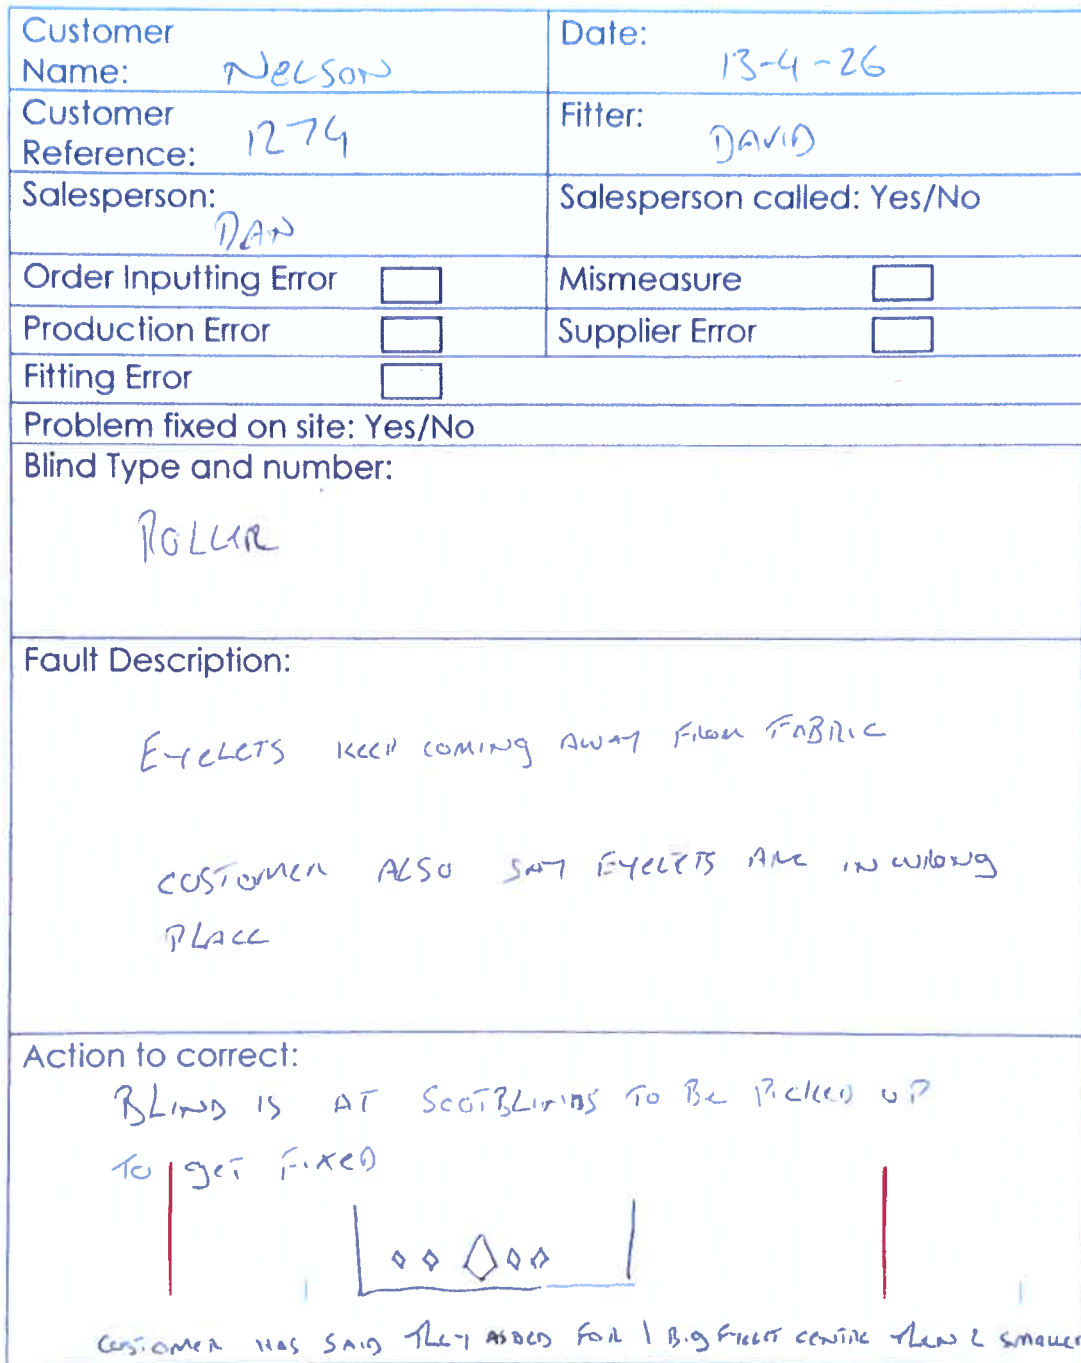 Customer
Name: NELSON
Date: 13-4-26
Customer
Reference: 1274
Fitter: DAVID
Salesperson: DAN
Salesperson called: Yes/No
Order Inputting Error
Mismeasure
Production Error
Supplier Error
Fitting Error
Problem fixed on site: Yes/No
Blind Type and number:
ROLLER
Fault Description:
EYELETS KEEP COMING AWAY FROM FABRIC
CUSTOMER ALSO SAY EYELETS ARE IN WRONG
PLACE
Action to correct:
BLIND IS AT SCOTBLINDS TO BE PICKED UP
TO GET FIXED
CUSTOMER HAS SAID THEY ASKED FOR 1 BIG CENTRE THEN 2 SMALLER